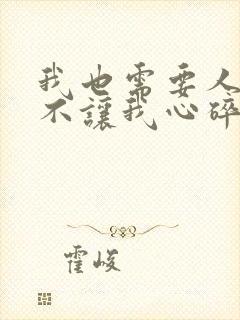 我也需要人
不讓我心碎
霍峻